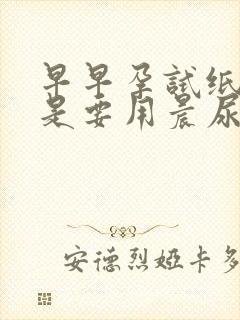 早早孕試纸
是要用晨尿
安德烈婭卡多